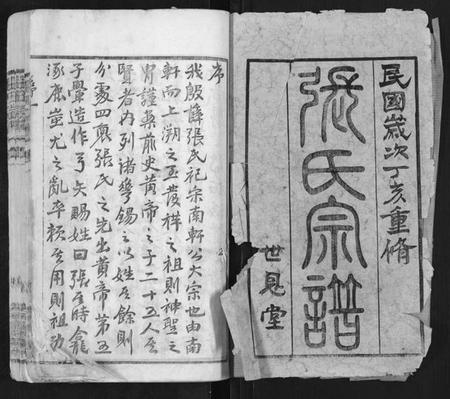 民國歲次丁亥重脩
張氏宗譜
世見堂
序
我殷薛張氏祀宗南軒公大宗也由南
軒而上溯之五發祥之祖則神聖之
胄謹案前史黃帝之子二十五人
賢者為列諸爵錫之以姓餘則
分處四裔張氏之先出黃帝第五
子揮造作弓矢賜姓曰張時
涿鹿蚩尤之亂平賴用則祖功